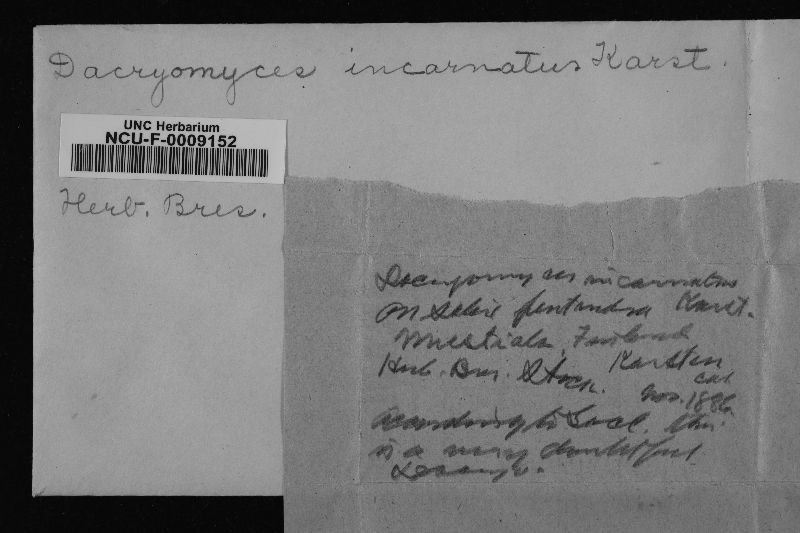 Dacryomyces incarnatus Karst.
UNC Herbarium
NCU-F-0009152
Herb. Bres.
Dacryomyces incarnatus
on Salix pentandra Karst.
Mustiala, Finland
Herb. Bres. Stock. Karsten
Nov. 1886
According to Sacc. this
is a very doubtful
Dacryo.